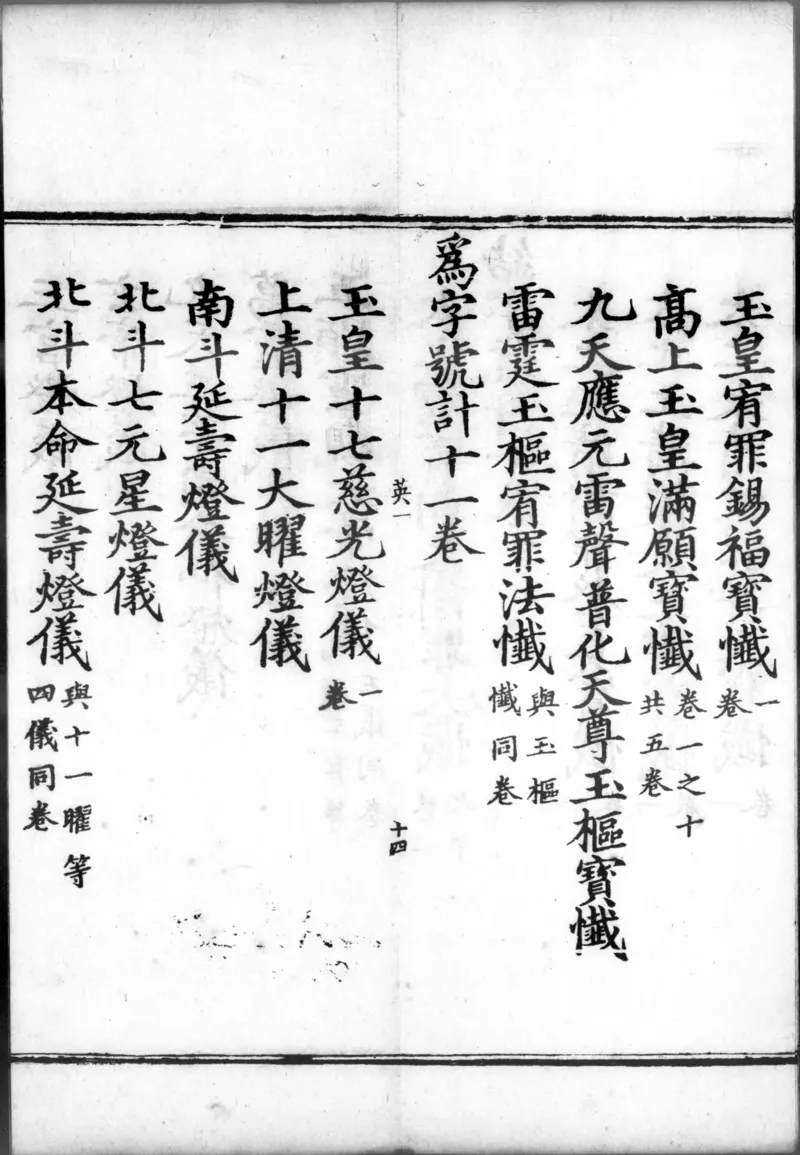 玉皇宥罪錫福寶懺一卷
高上玉皇滿願寶懺卷一之十共五卷
九天應元雷聲普化天尊玉樞寶懺
雷霆玉樞宥罪法懺與玉樞懺同卷
爲字號計十一卷
英一
十四
玉皇十七慈光燈儀一卷
上清十一大曜燈儀
南斗延壽燈儀
北斗七元星燈儀
北斗本命延壽燈儀與十一曜等四儀同卷